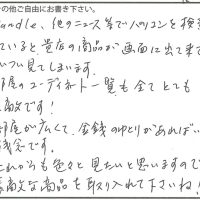 の他ご自由にお書き下さい。
andle、他のニュース等でパソコンを検
ていると貴店の商品が画面に出て来て
ついつい見てしまいます。
部屋のコーディネート一覧も全てとても
素敵です！
部屋が広くて、金銭のゆとりがあれば
残念です。
これからも色々と見たいと思いますので
素敵な商品を取り入れて下さいね！